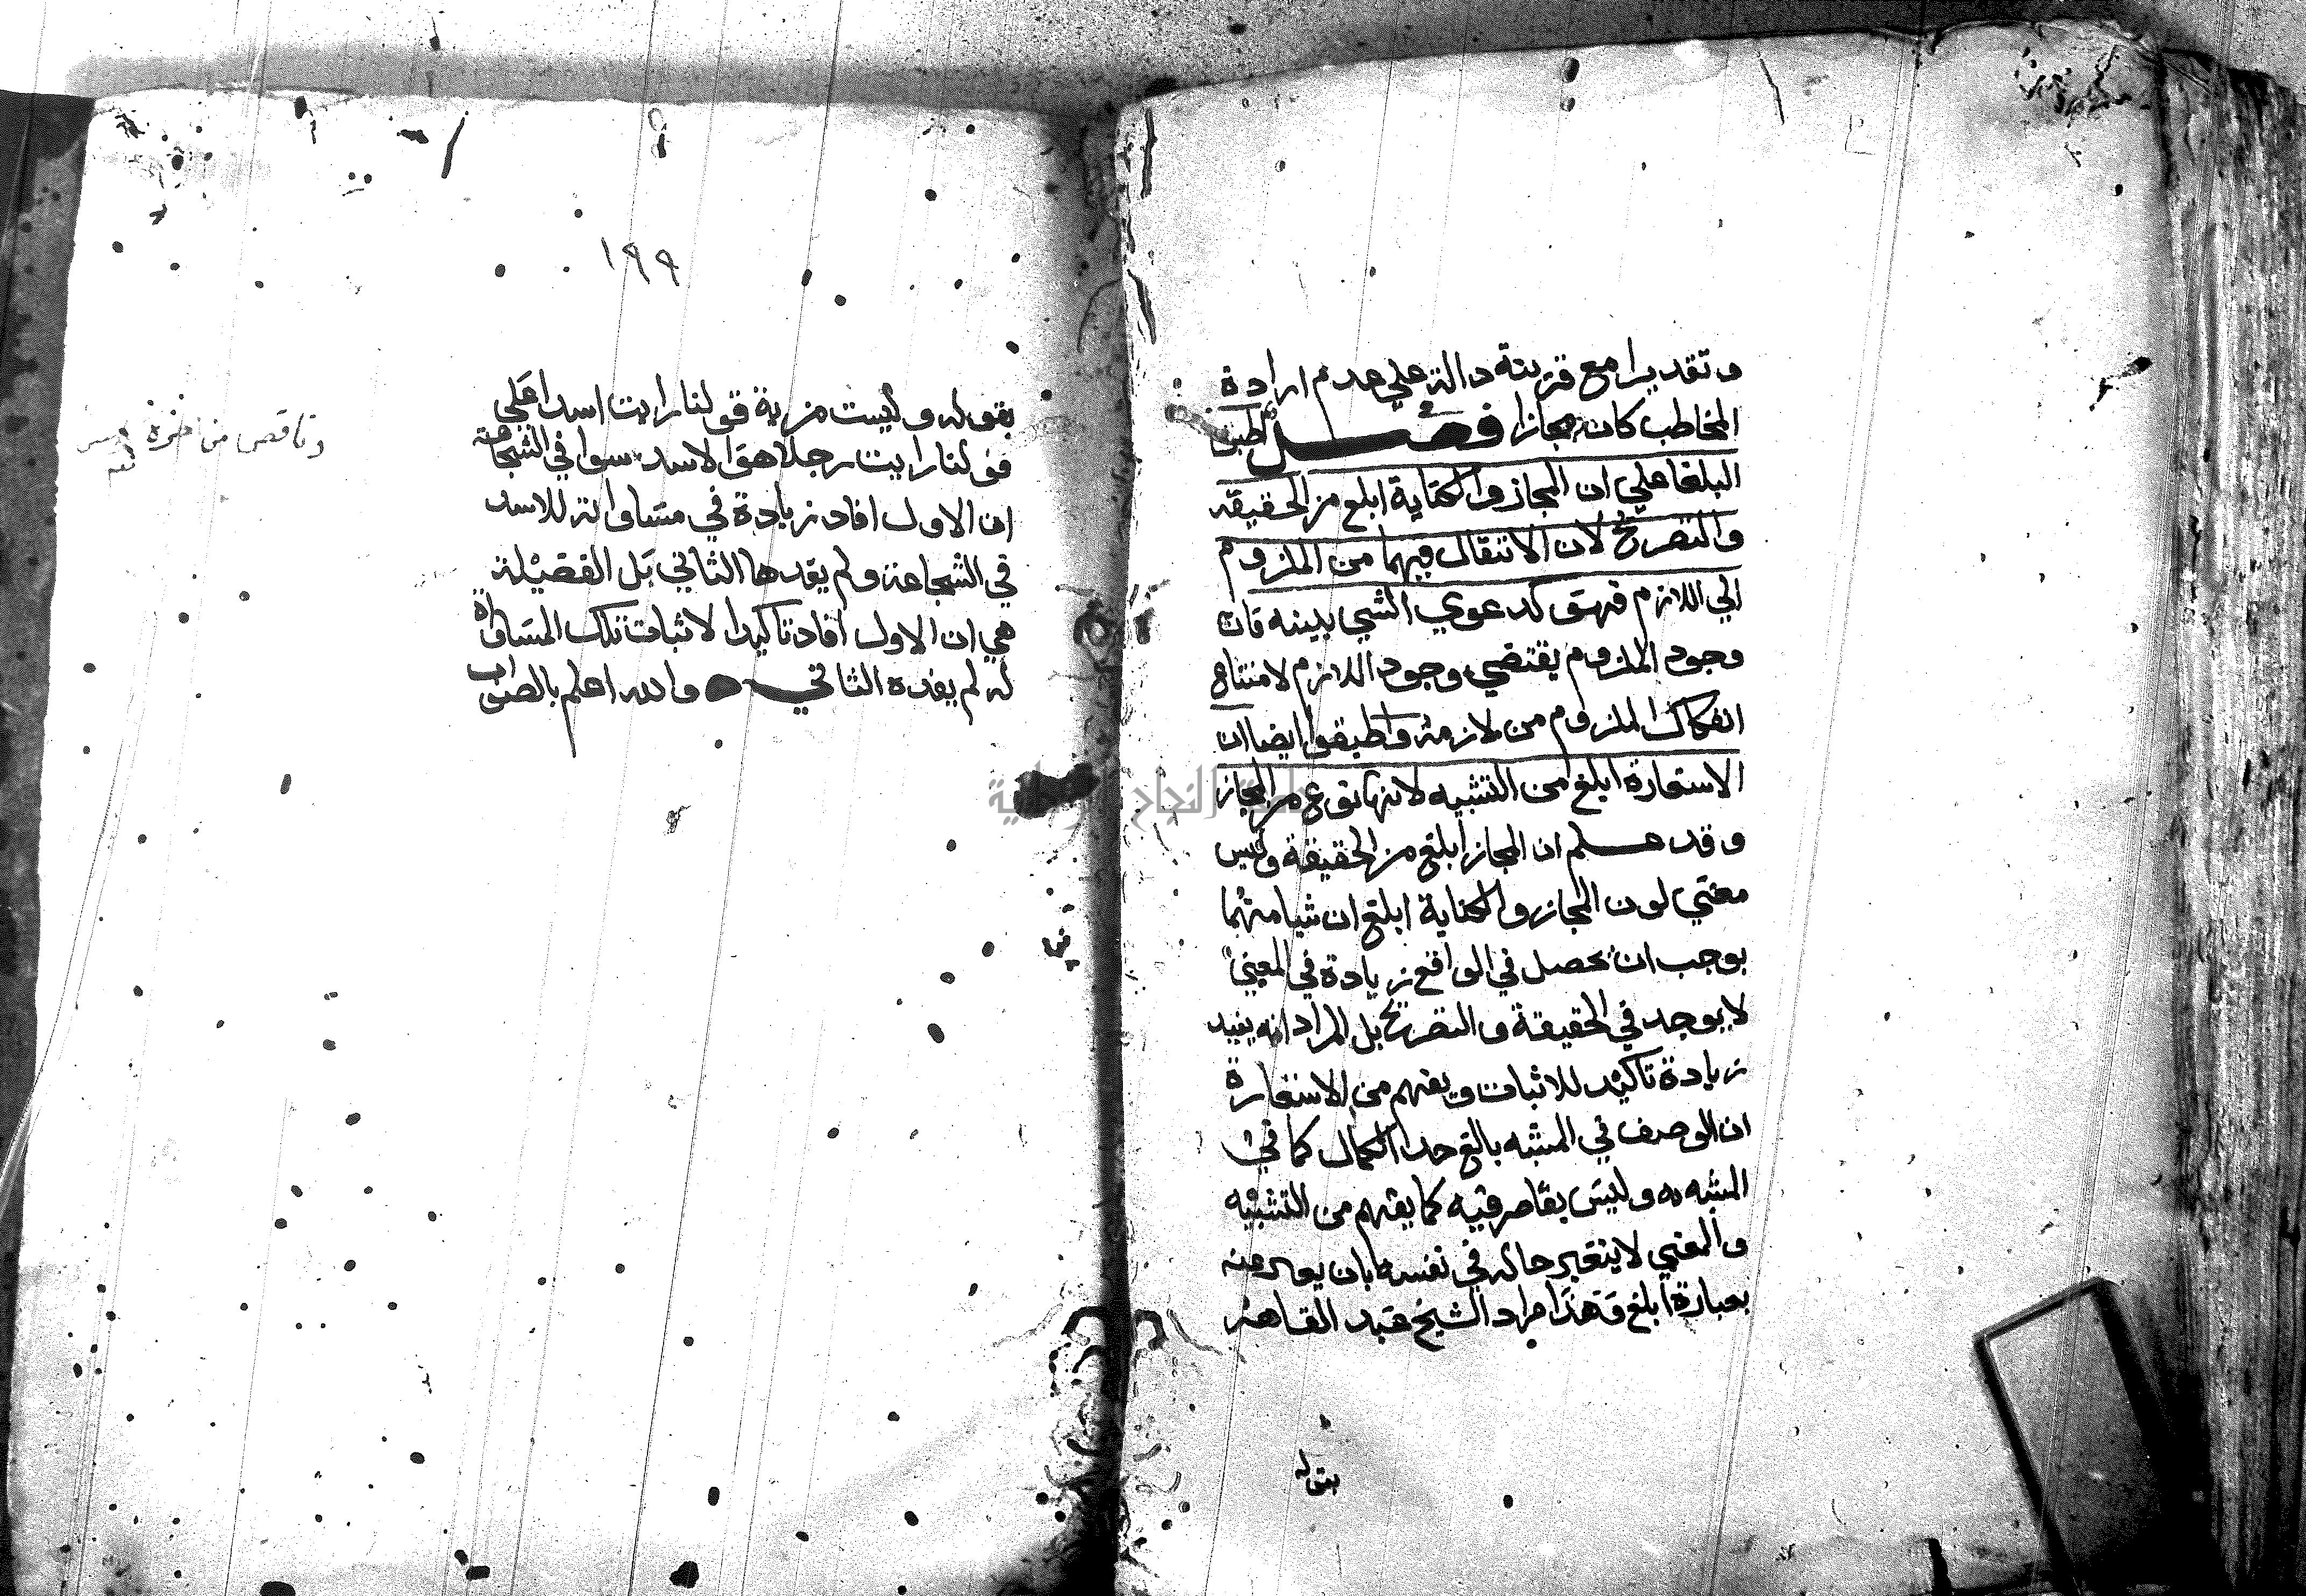 وتقديرا مع قرينة دالة علي عدم ارادة
المخاطب كان مجازا فصل اطبق
البلغا علي ان المجاز والكناية ابلغ من الحقيقة
والتصريح لان الانتقال فيهما من الملزوم
الي اللازم فهو كدعوي الشي ببينه فان
وجود الملزوم يقتضي وجود اللازم لامتناع
انفكاك الملزوم من لازمه واطبقوا ايضا ان
الاستعارة ابلغ من التشبيه لانها نوع من المجاز
وقد علم ان المجاز ابلغ من الحقيقة وليس
معني لون المجاز والكناية ابلغ ان شيا منهما
يوجب ان يحصل في الواقع زيادة في المعني
لا يوجد في الحقيقة والتصريح بل المراد انه يفيد
زيادة تاكيد للاثبات ويفهم من الاستعارة
ان الوصف في المشبه بالغ حد الكمال كما في
المشبه به وليس بقاصر فيه كما يفهم من التشبيه
والمعني لا يتغير حاله في نفسه بان يعبر عنه
بعبارة ابلغ وهذا مراد الشيخ عبد القاهر
بقوله
١٩٩
بقوله وليست مزية قولنا رايت اسدا علي
قولنا رايت رجلا هو الاسد سوا في الشجاعة
ان الاول افاد زيادة في مساواته للاسد
في الشجاعة ولم يفدها الثاني بل الفضيلة
هي ان الاول افاد تاكيدا لاثبات تلك المساواة
له لم يفده الثاني والله اعلم بالصواب
وناقص من اخره